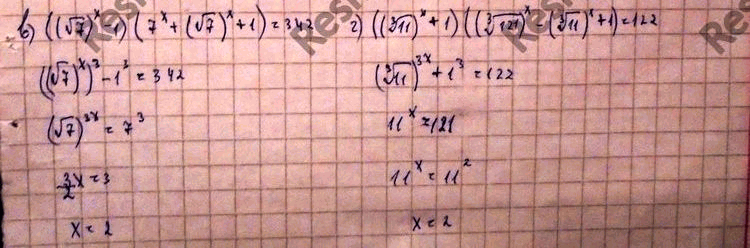 в) ((√7)^x - 1) (7^x + (√7)^x + 1) = 342
((√7)^x)^3 - 1^3 = 342
(√7)^3x = 7^3
3/2 x = 3
x = 2
г) ((∛11)^x + 1) ((∛121)^x - (∛11)^x + 1) = 122
(∛11)^3x + 1^3 = 122
11^x = 121
11^x = 11^2
x = 2